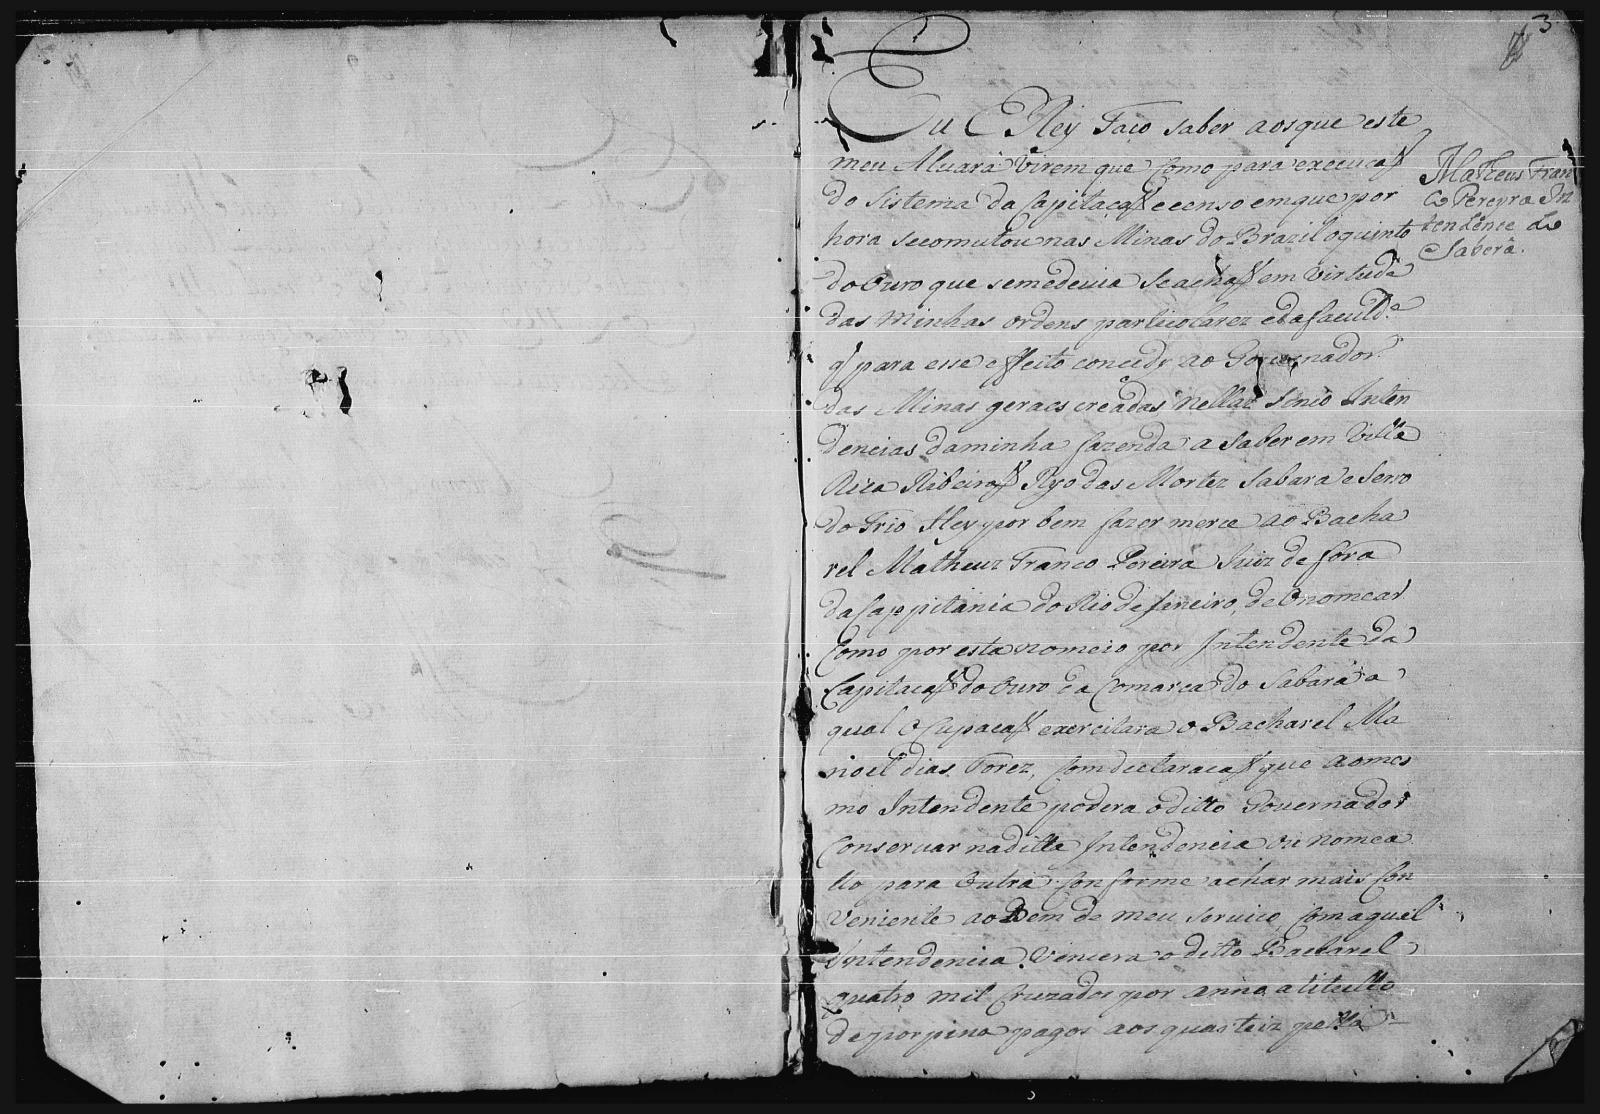 3
Eu ElRey Faço saber aosque este
meu Aluará virem que como para execucaõ
do sistema da Capitaçaõ e censo emque por
hora secomutou nas Minas do Brazil o quinto
do Ouro que semedeuia seachaõ em virtude
das minhas ordens particolarez edafaculd.e
q para esse effeito concedy ao Gouernador
das Minas geraes creadas nellas sinco Inten
dencias daminha fazenda a saber em Villa
Rica Ribeiraõ Ryo das Mortez Sabara e Serro
do Frio Hey por bem fazer merce ao Bacha
rel Matheuz Franco Pereira Juiz de fora
da Cappitania do Rio de Janeiro, de Onomear
Como por esta nomeio por Intendente da
Capitacaõ do Ouro da Comarca do Sabará a
qual Ocupacaõ exercitara o Bacharel Ma
noel dias Torez, Comdeclaracaõ que aomes
mo Intendente podera oditto Gouernador
Conseruar naditta Intendencia ou nomea
llo para Outra Conforme achar mais Con
veniente ao Bem de meu seruico, Comaqual
Intendencia Vencera o ditto Bacharel
quatro mil Cruzados por anno atitullo
de porpina pagos aos quarteiz pella
Matheus Fran
co Pereyra In
tendente do
Saberâ.